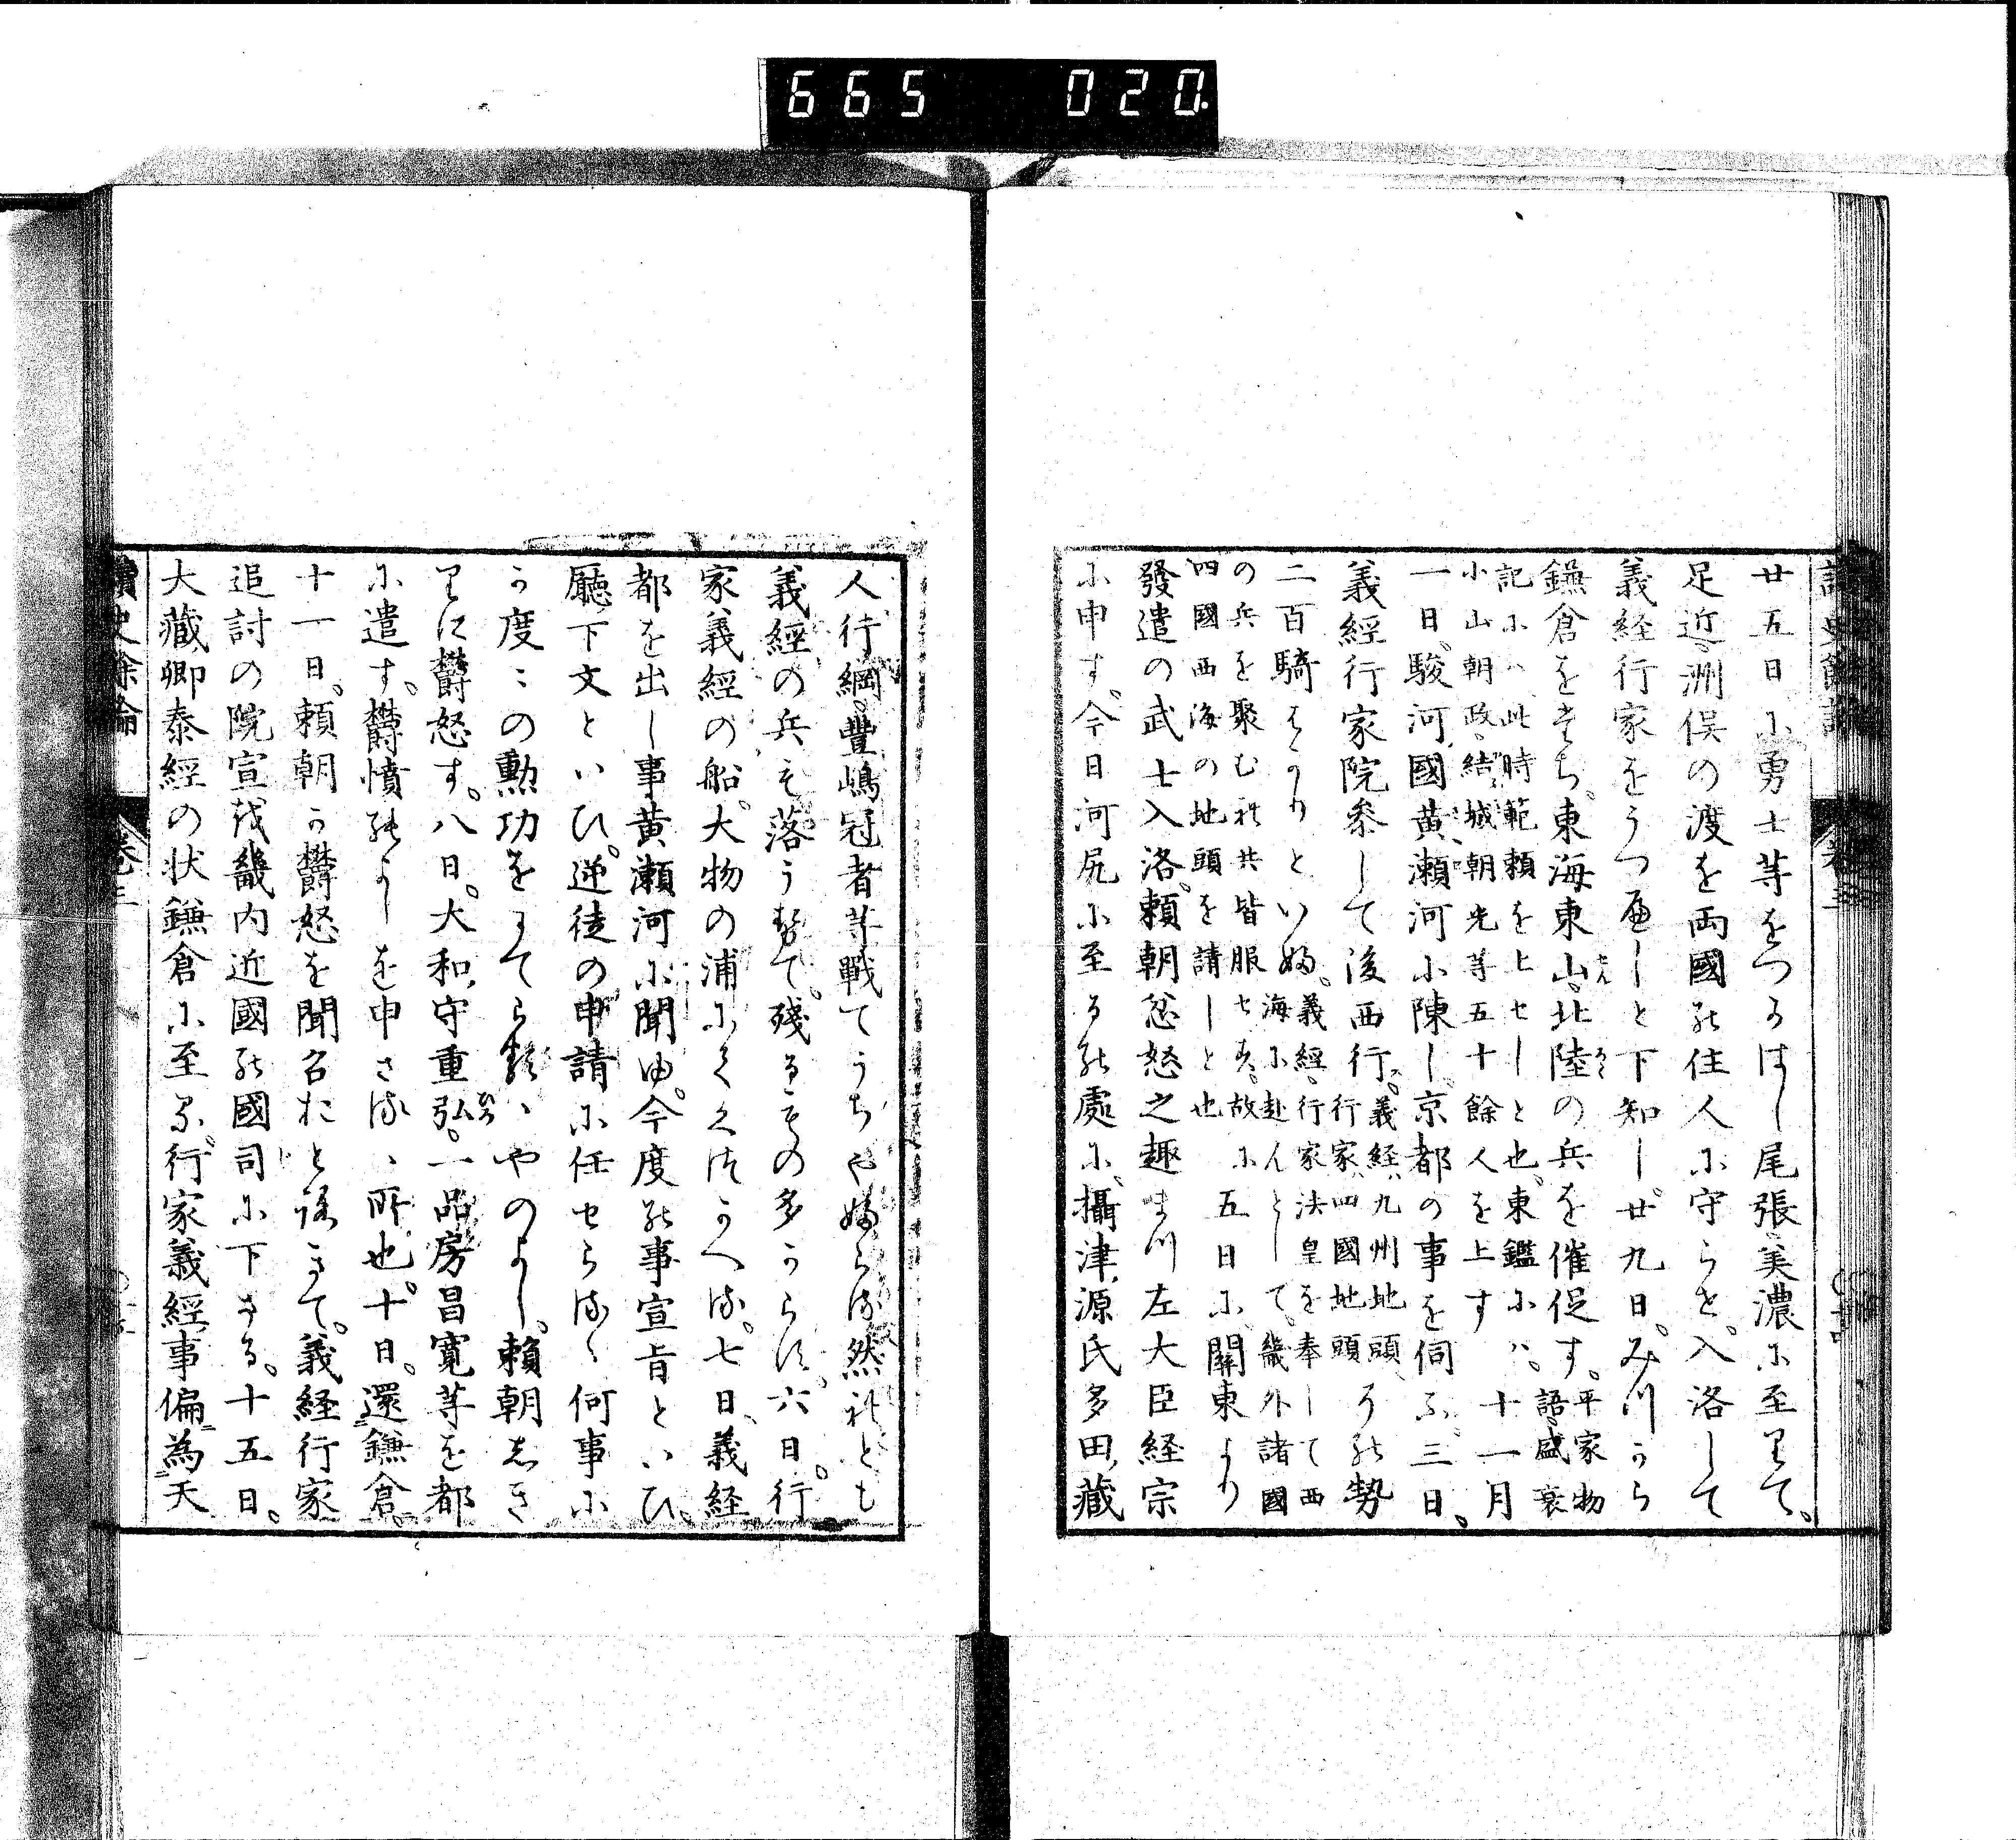 665 020.
廿五日に勇士等をつかはし尾張美濃に至りて。
足近洲俣の渡を両國の住人に守らせ入洛して
義経行家をうつべしと下知し廿九日。みつから
鎌倉をたち東海東山北陸の兵を催促す。平家物
語盛衰
記にハ此時範頼を上せしと也東鑑にハ。
小山朝政結城朝光等五十餘人を上す
十一月
一日駿河國黄瀬河に陳し京都の事を伺ふ三日。
義經行家院参して後西行。義経九州地頭
行家四國地頭
その勢
二百騎はかりといふ。義經行家法皇を奉して西
海に赴んとして畿外諸國
の兵を聚むれ共皆服せす故に
四國西海の地頭を請しと也
五日に關東より
發遣の武士入洛頼朝忿怒之趣まつ左大臣経宗
に申す今日河尻に至るの處に攝津源氏多田藏
人行綱豊嶋冠者等戰てうちやふらる然れとも
義經の兵も落うせて殘るもの多からす六日。行
家義經の船大物の浦にてくつかへる七日義経
都を出し事黄瀬河に聞ゆ今度の事宣旨といひ。
廳下文といひ。逆徒の申請に任せらるゝ何事に
か度々の勲功をすてらるゝやのよし頼朝しき
りに欝怒す。八日。大和守重弘。一品房昌寛等を都
に遣す。欝憤のよしを申さるゝ所也十日。還鎌倉。
十一日。頼朝か欝怒を聞召おとろきて。義経行家
追討の院宣を畿内近國の國司に下さる。十五日。
大藏卿泰經の状鎌倉に至る行家義經事偏為天
讀史餘論 巻二